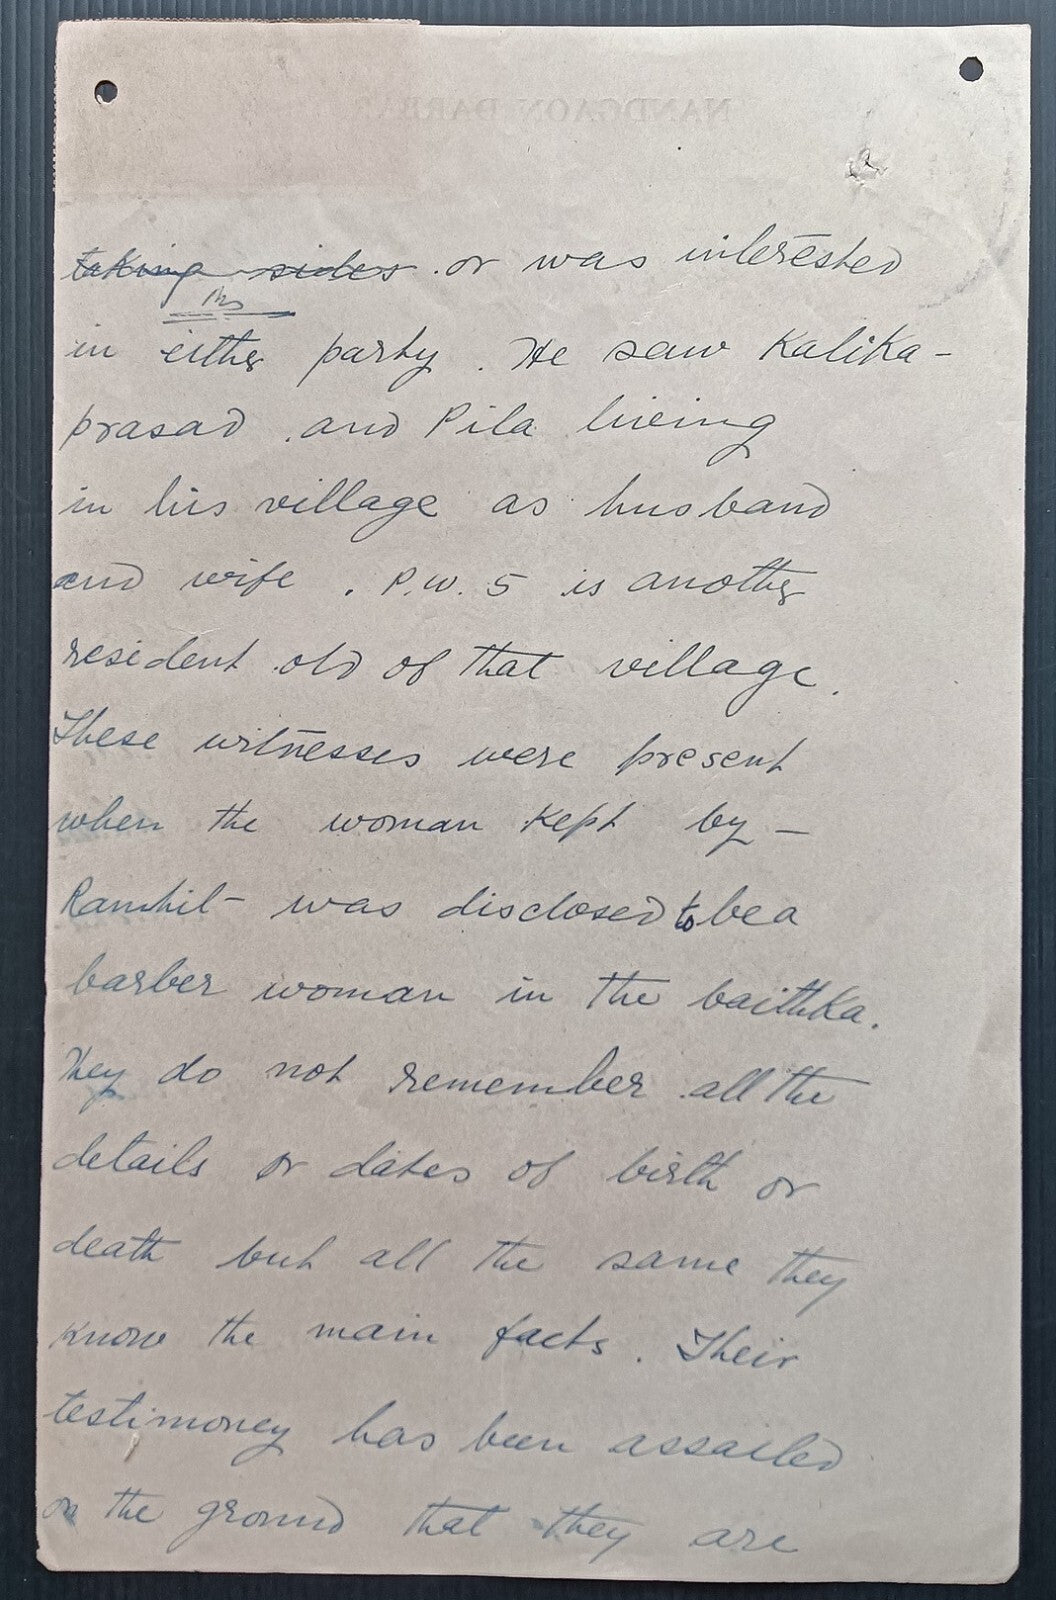 NANDGAON DARBAR
taking sides or was interested
in either party. He saw Kalika-
prasad and Pila living
in his village as husband
and wife. P.W. 5 is another
resident old of that village.
These witnesses were present
when the woman kept by -
Ramhit - was disclosed to be a
barber woman in the baithka.
They do not remember all the
details or dates of birth or
death but all the same they
know the main facts. Their
testimoney has been assailed
on the ground that they are